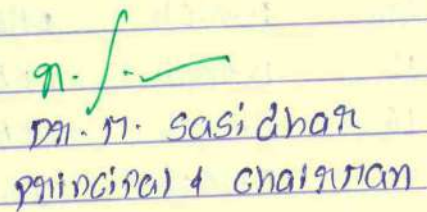 Dr. M. Sasidhar
Principal & Chairman